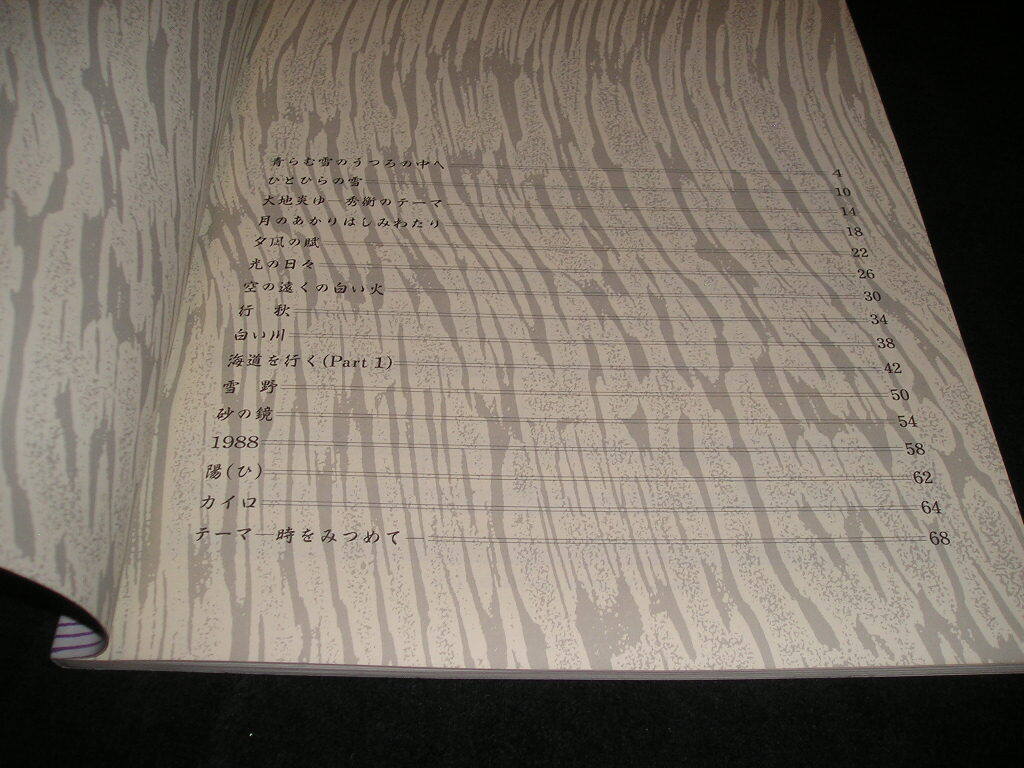 青らむ雪のうつろの中へ 4
ひとひらの雪 10
大地炎ゆ─秀衡のテーマ 14
月のあかりはしみわたり 18
夕凪の賦 22
光の日々 26
空の遠くの白い火 30
行 秋 34
白い川 38
海道を行く(Part 1) 42
雪 野 50
砂の鏡 54
1988 58
陽(ひ) 62
カイロ 64
テーマ─時をみつめて 68